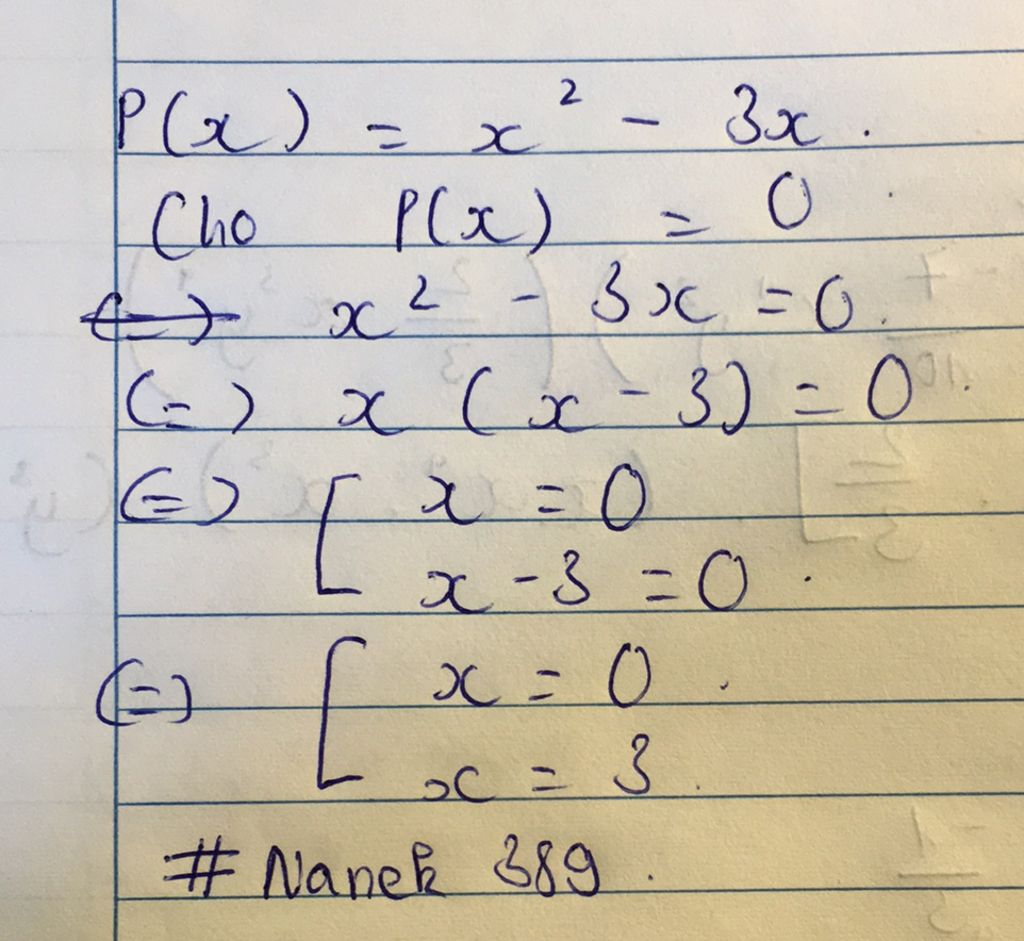 P(x) = x² - 3x.
Cho P(x) = 0
x² - 3x = 0.
(=) x (x - 3) = 0.
(=) [ x = 0
x - 3 = 0.
(=) [ x = 0.
x = 3.
# Nanek 389.